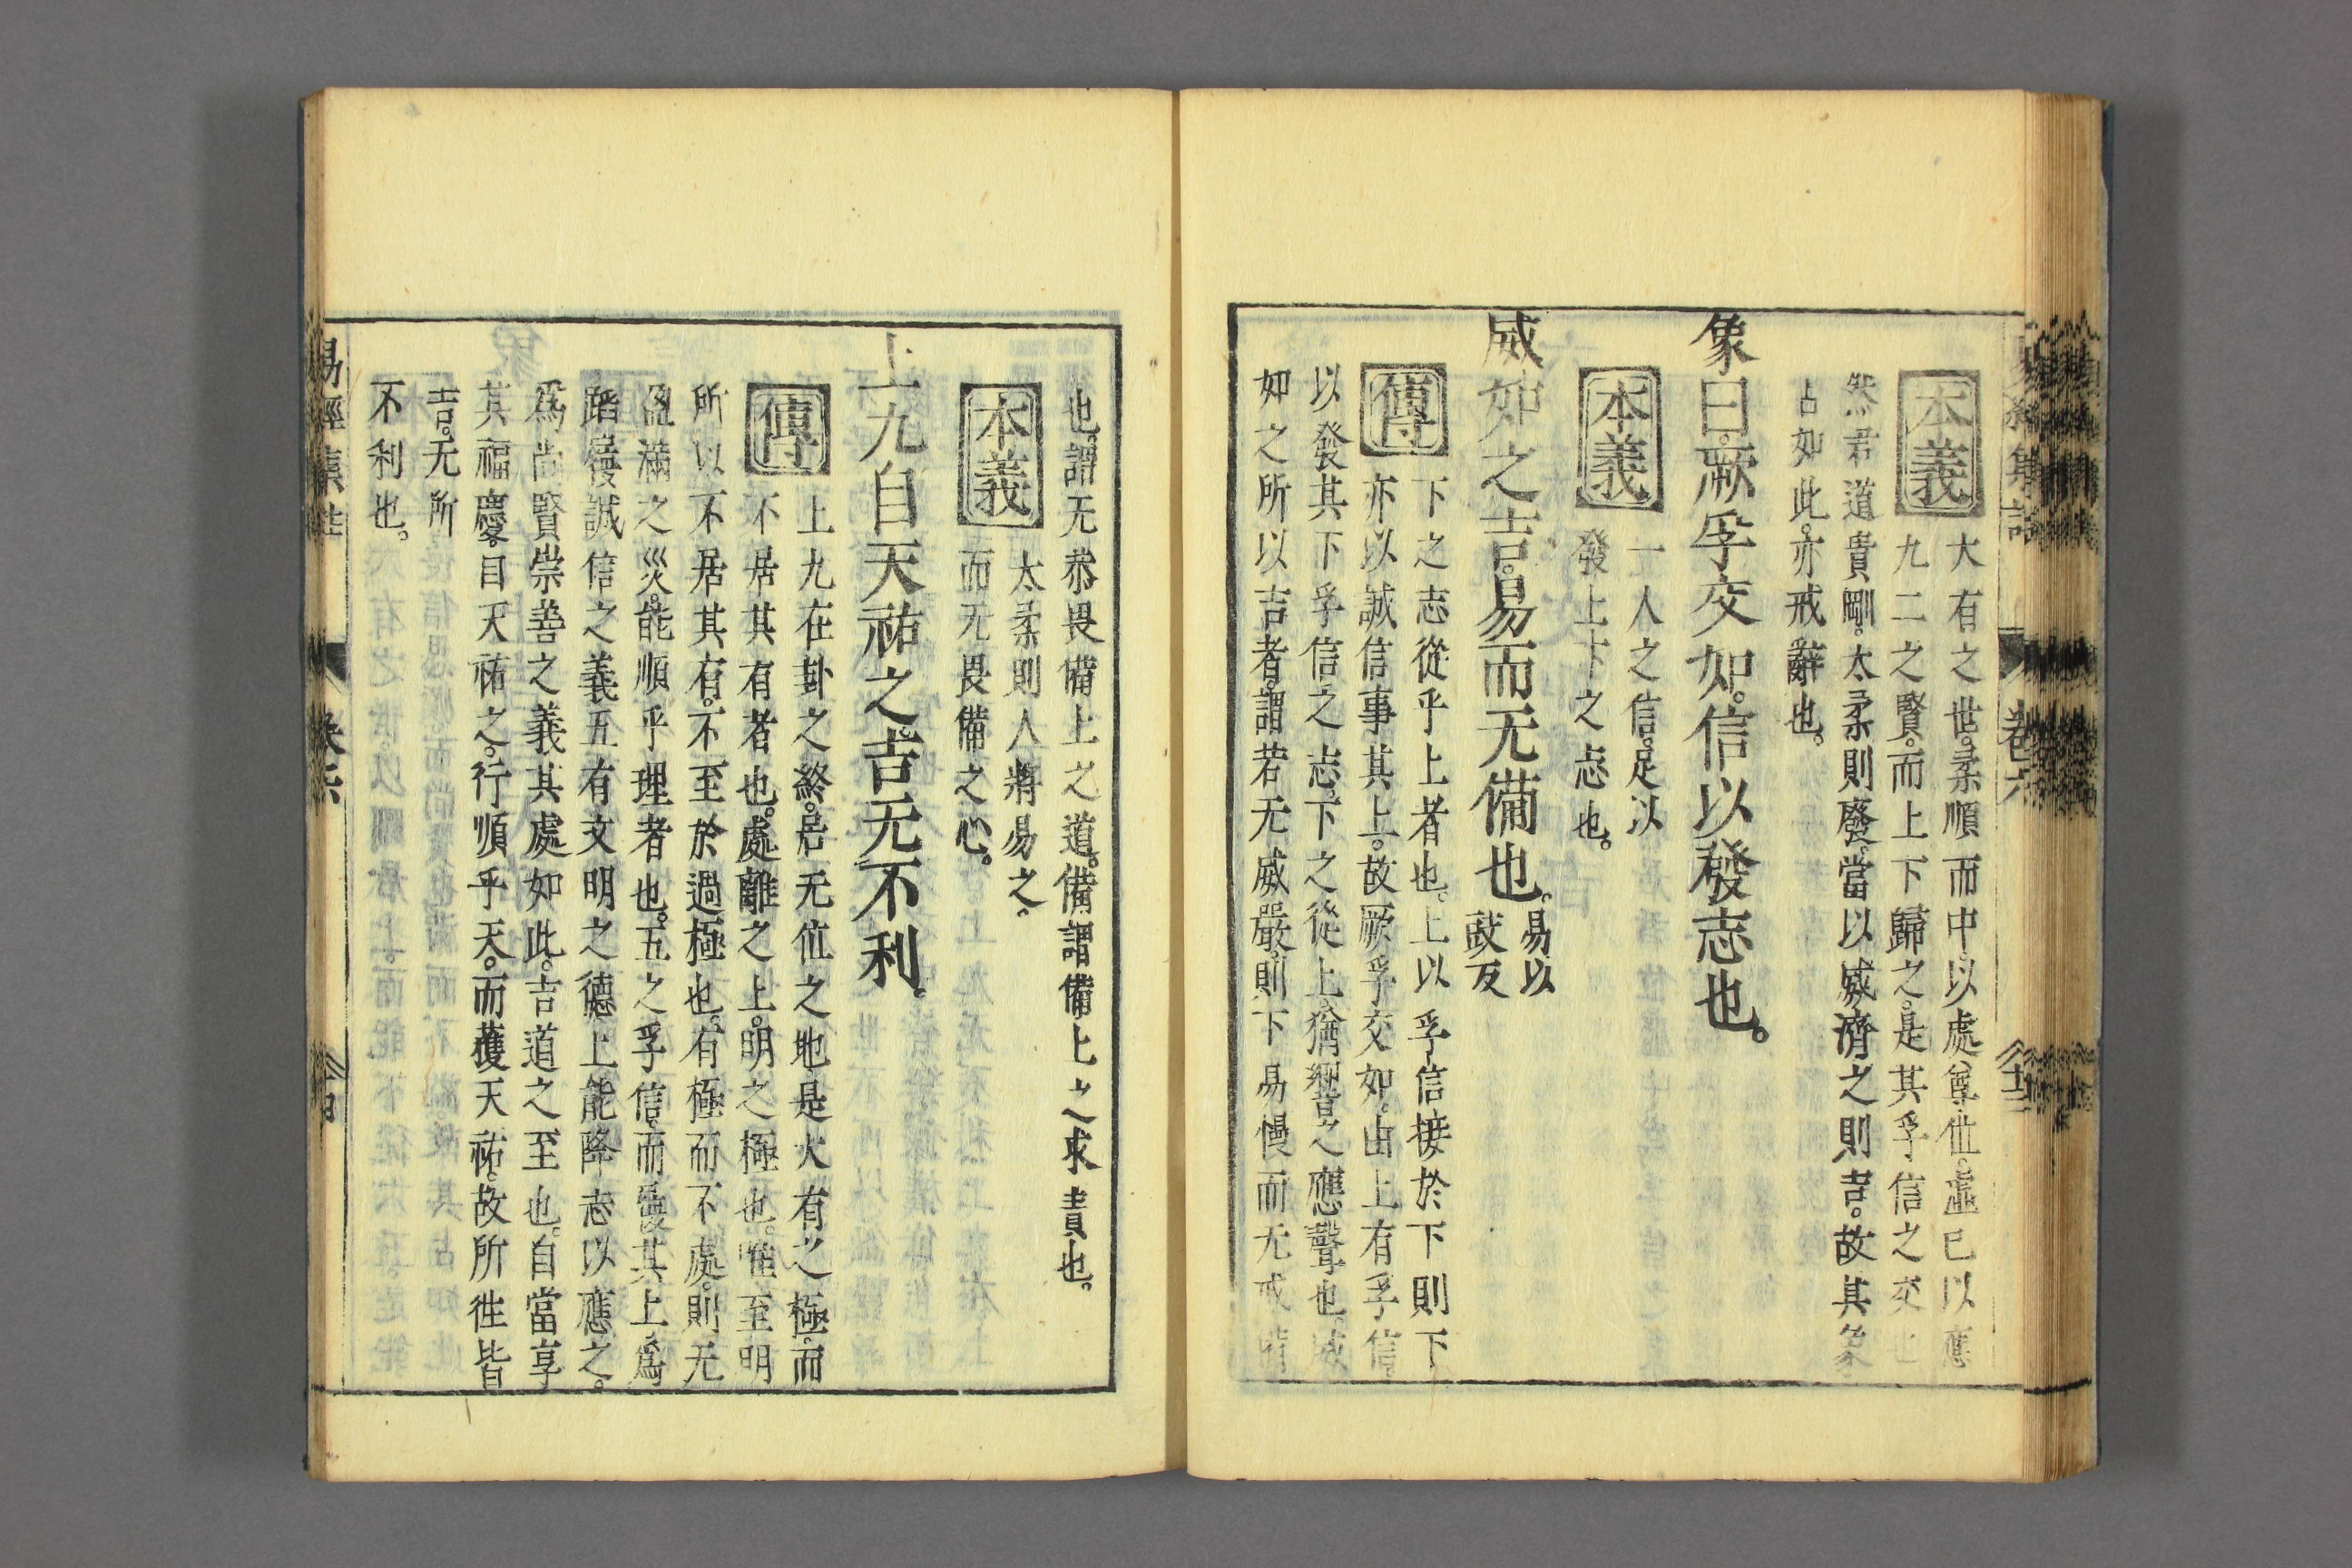 本義
大有之世。柔順而中。以處尊位。虛己以應
九二之賢。而上下歸之。是其孚信之交也
然君道貴剛。太柔則廢。當以威濟之則吉。故其象
占如此。亦戒辭也。
象曰。厥孚交如。信以發志也。
本義
一人之信。足以
發上下之志也。
威如之吉。易而无備也。
易以
豉反
傳
下之志從乎上者也。上以孚信接於下則下
亦以誠信事其上。故厥孚交如。由上有孚信。
以發其下孚信之志。下之從上。猶響之應聲也。威
如之所以吉者。謂若无威嚴。則下易慢而无戒備
也。謂无恭畏備上之道。備謂備上之求責也。
本義
太柔則人將易之。
而无畏備之心。
上九自天祐之。吉无不利。
傳
上九在卦之終。居无位之地是大有之極。而
不居其有者也。處離之上。明之極也。唯至明
所以不居其有。不至於過極也。有極而不處。則无
盈滿之災。能順乎理者也。五之孚信。而履其上。爲
蹈履誠信之義五有文明之德上能降志以應之。
爲尚賢崇善之義其處如此。吉道之至也。自當享
其福慶。自天祐之。行順乎天。而獲天祐。故所徃皆
吉。无所
不利也。
易經集註
卷六